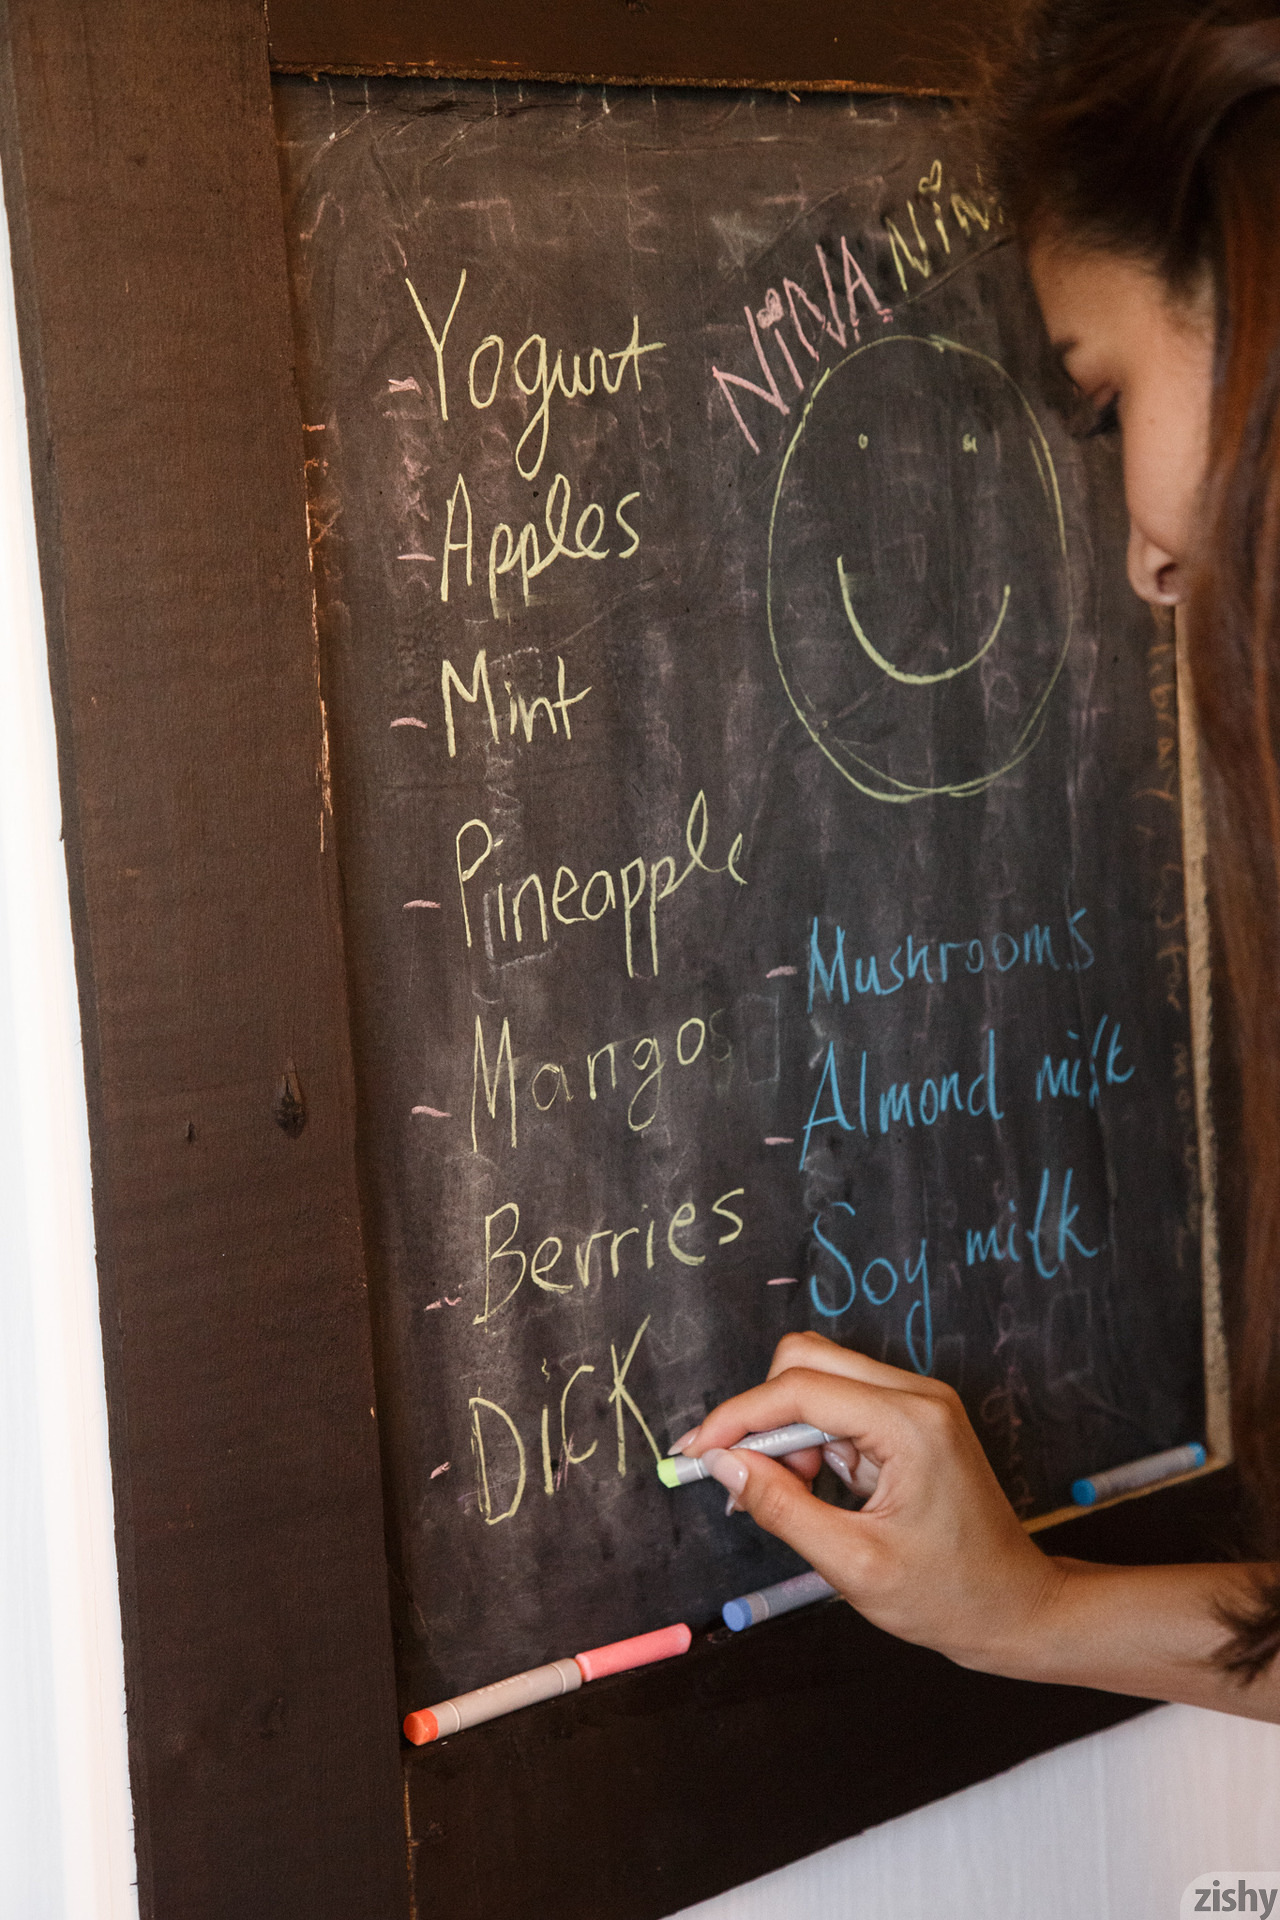 NiNA NiN
- Yogurt
- Apples
- Mint
- Pineapple
- Mangos
- Berries
- DiCK
- Mushrooms
- Almond milk
- Soy milk
zishy